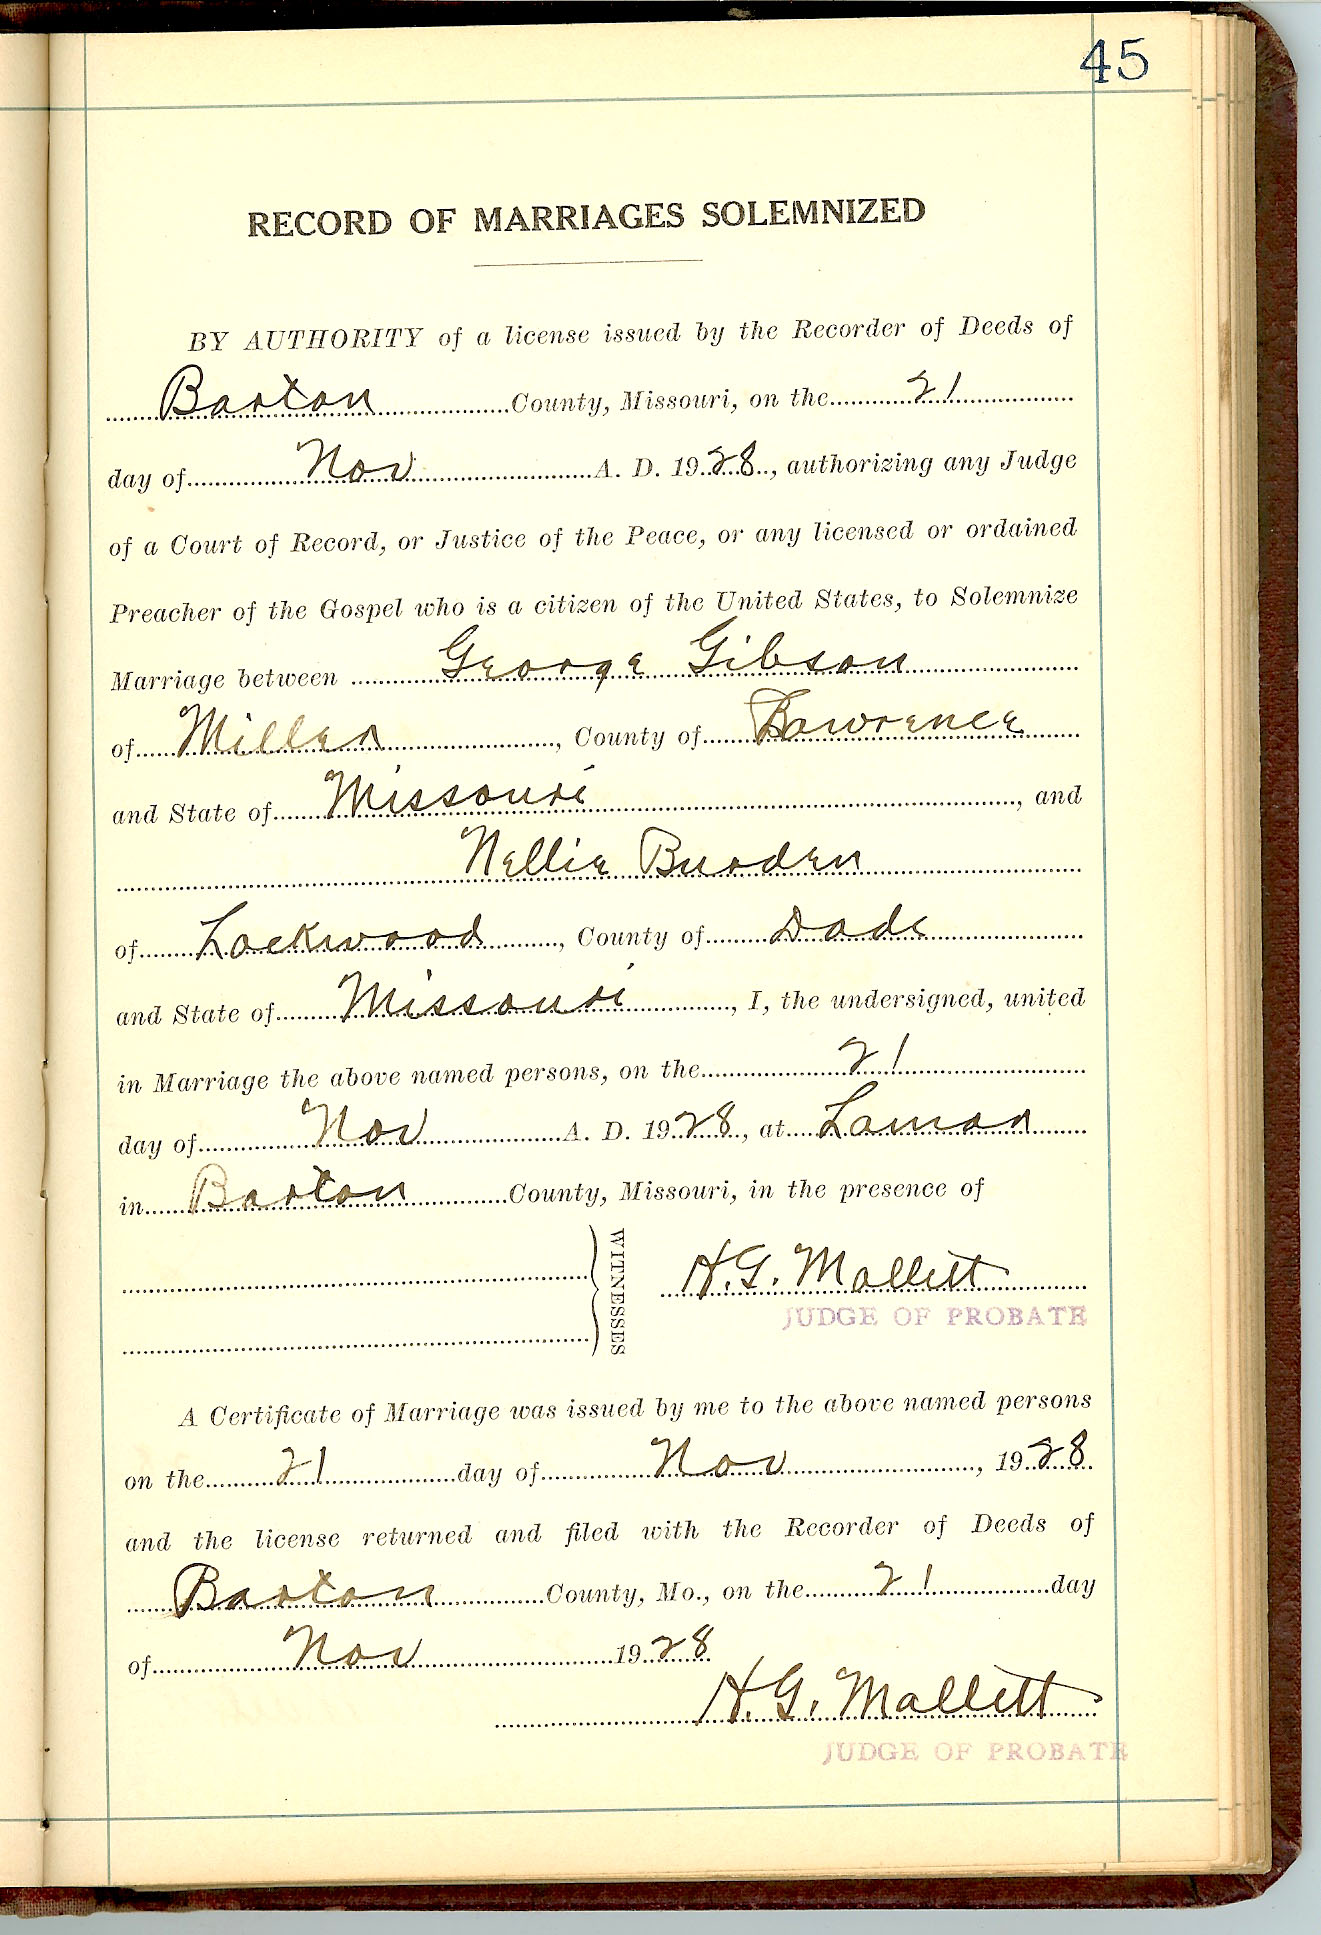 45
RECORD OF MARRIAGES SOLEMNIZED
BY AUTHORITY of a license issued by the Recorder of Deeds of
Barton County, Missouri, on the 21
day of Nov A. D. 1928, authorizing any Judge
of a Court of Record, or Justice of the Peace, or any licensed or ordained
Preacher of the Gospel who is a citizen of the United States, to Solemnize
Marriage between George Gibson
of Miller, County of Lawrence
and State of Missouri, and
Nellie Burden
of Lockwood, County of Dade
and State of Missouri, I, the undersigned, united
in Marriage the above named persons, on the 21
day of Nov A. D. 1928, at Lamar
in Barton County, Missouri, in the presence of
WITNESSES
H. G. Mallett
JUDGE OF PROBATE
A Certificate of Marriage was issued by me to the above named persons
on the 21 day of Nov, 1928
and the license returned and filed with the Recorder of Deeds of
Barton County, Mo., on the 21 day
of Nov 1928
H. G. Mallett
JUDGE OF PROBATE